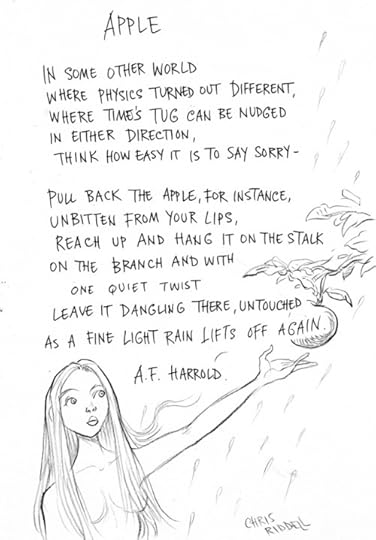 APPLE
IN SOME OTHER WORLD
WHERE PHYSICS TURNED OUT DIFFERENT,
WHERE TIME'S TUG CAN BE NUDGED
IN EITHER DIRECTION,
THINK HOW EASY IT IS TO SAY SORRY-
PULL BACK THE APPLE, FOR INSTANCE,
UNBITTEN FROM YOUR LIPS,
REACH UP AND HANG IT ON THE STALK
ON THE BRANCH AND WITH
ONE QUIET TWIST
LEAVE IT DANGLING THERE, UNTOUCHED
AS A FINE LIGHT RAIN LIFTS OFF AGAIN.
A.F. HARROLD.
CHRIS
RIDDELL